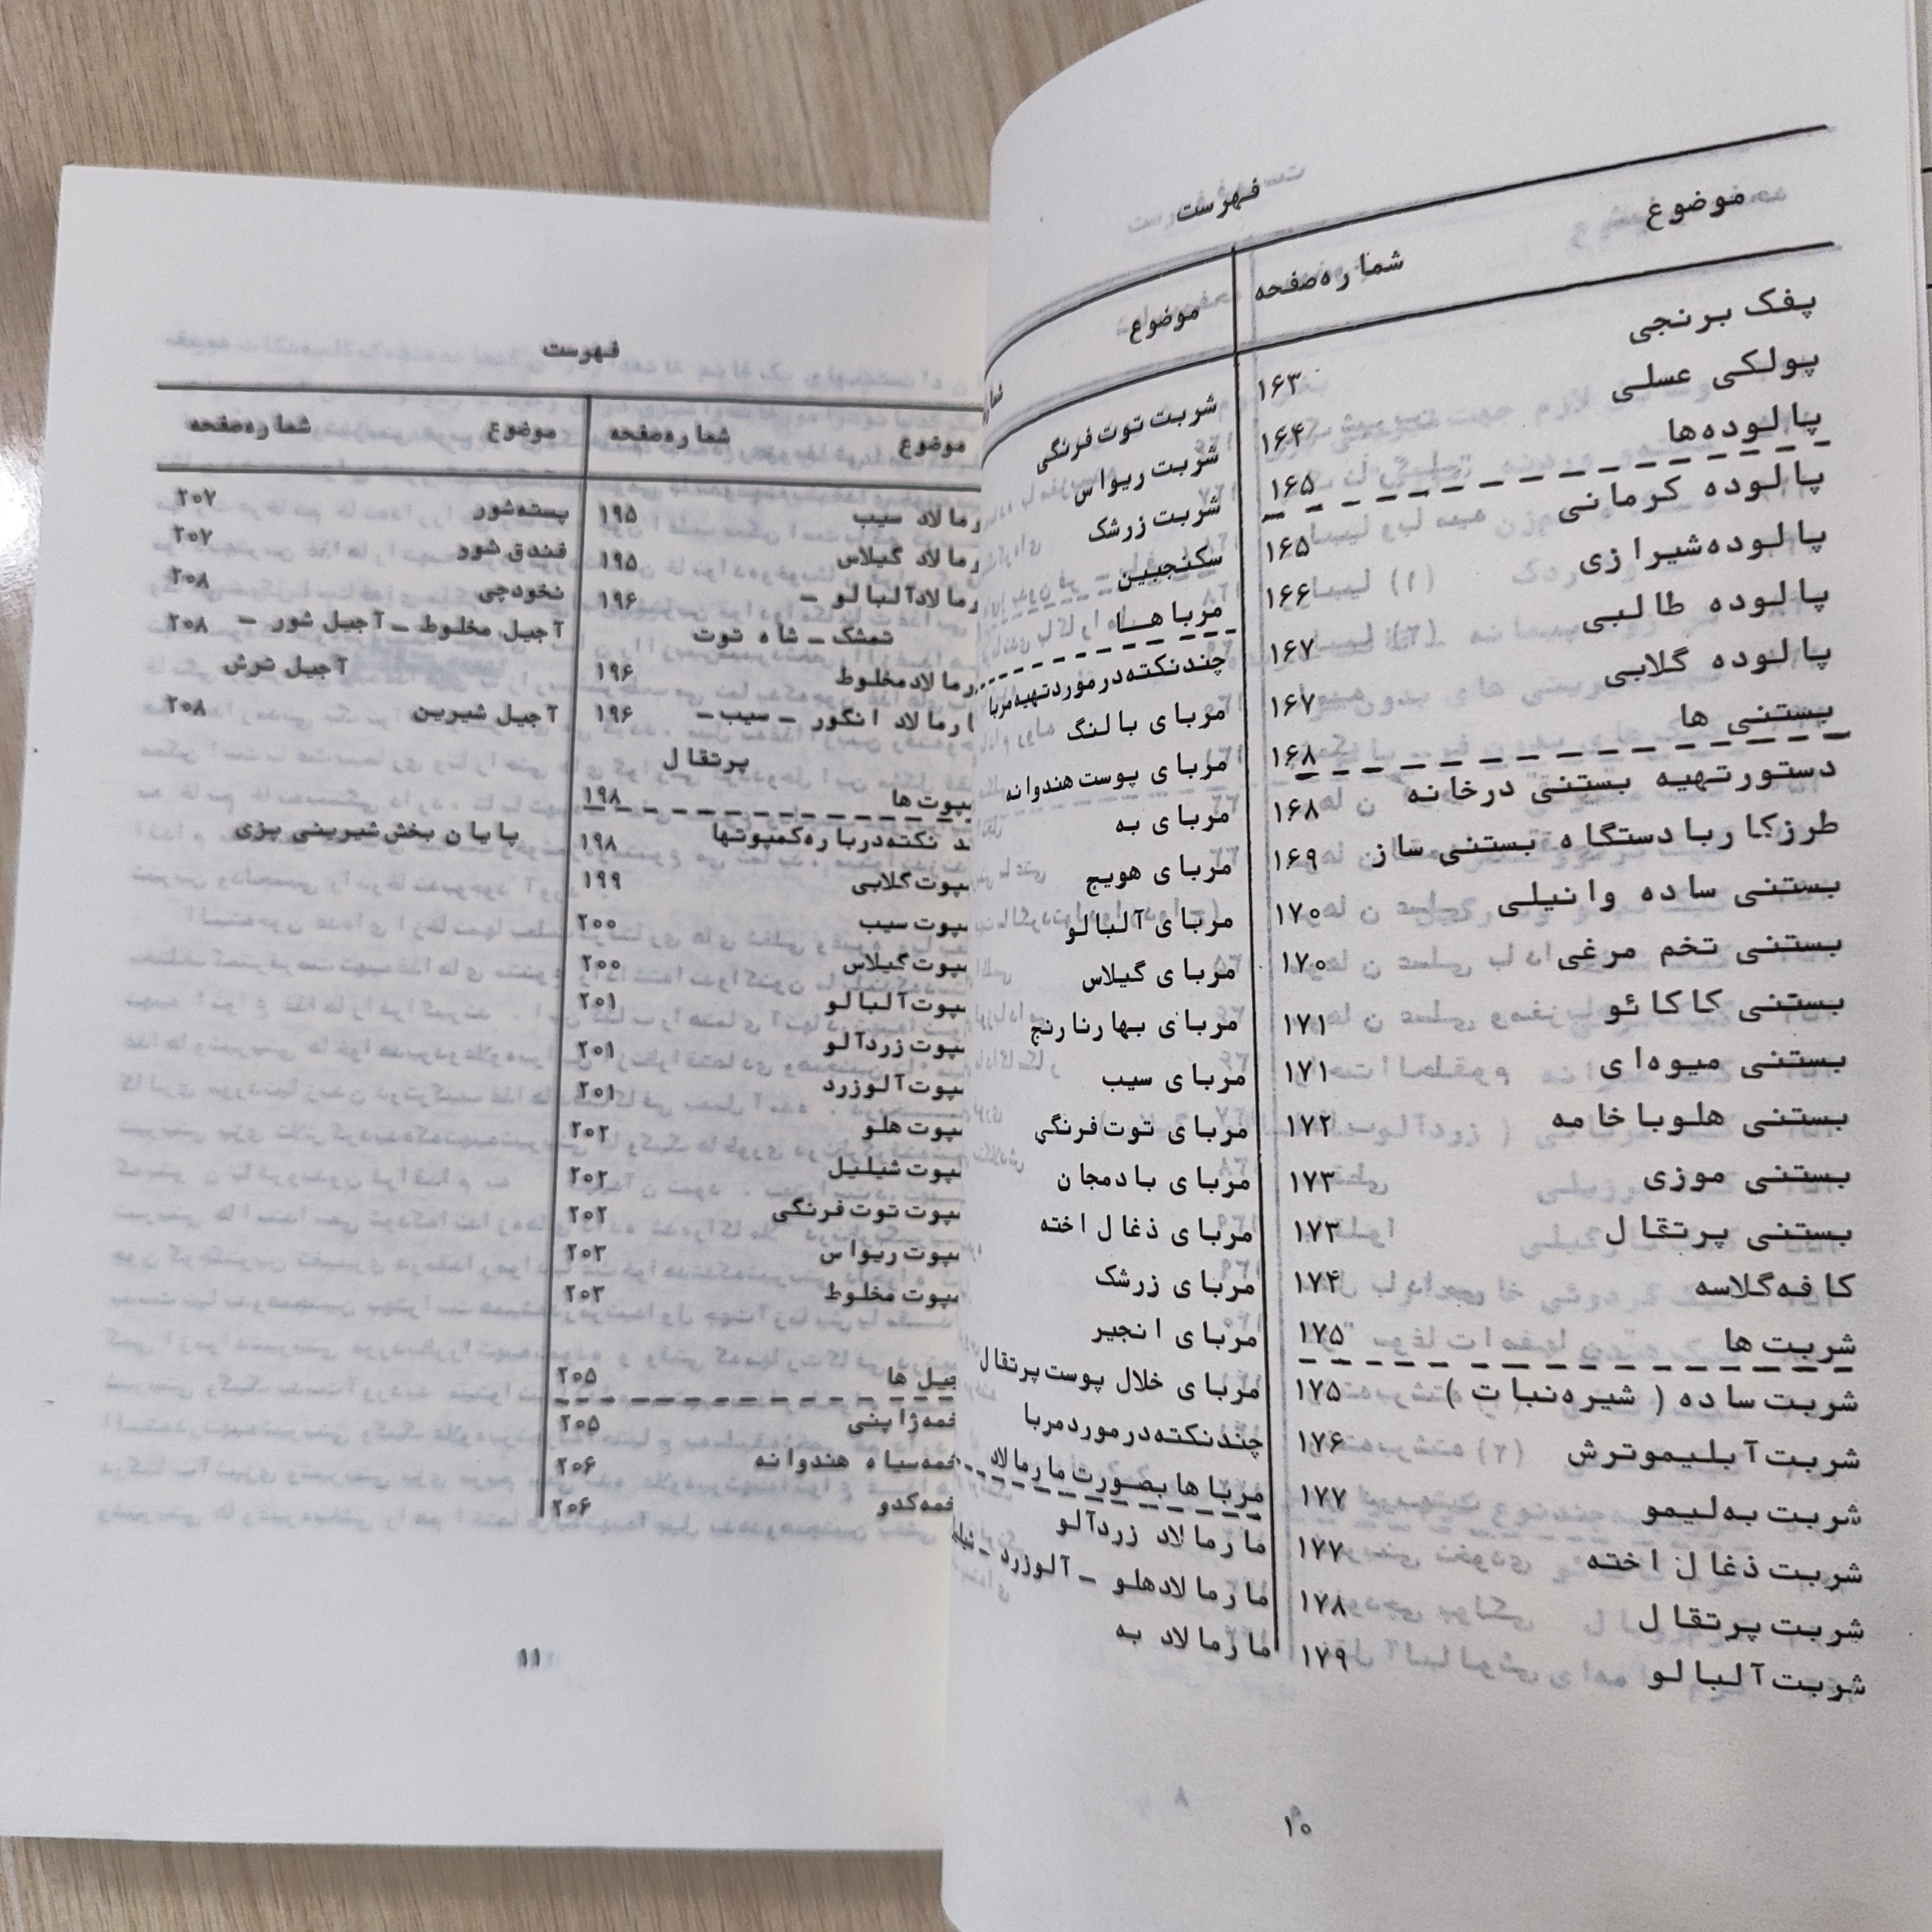 فهرست
موضوع شماره‌صفحه
پفک برنجی ۱۶۳
پولکی عسلی ۱۶۴
پالوده‌ها ۱۶۵
پالوده کرمانی ۱۶۵
پالوده‌شیرازی ۱۶۶
پالوده طالبی ۱۶۷
پالوده گلابی ۱۶۷
بستنی ها ۱۶۸
دستورتهیه بستنی درخانه ۱۶۸
طرزکاربادستگاه بستنی ساز ۱۶۹
بستنی ساده وانیلی ۱۷۰
بستنی تخم مرغی ۱۷۰
بستنی کاکائو ۱۷۱
بستنی میوه‌ای ۱۷۱
بستنی هلوباخامه ۱۷۲
بستنی موزی ۱۷۳
بستنی پرتقال ۱۷۳
کافه‌گلاسه ۱۷۴
شربت ها ۱۷۵
شربت ساده ( شیره‌نبات ) ۱۷۵
شربت آبلیموترش ۱۷۶
شربت به‌لیمو ۱۷۷
شربت ذغال اخته ۱۷۷
شربت پرتقال ۱۷۸
شربت آلبالو ۱۷۹
موضوع
شربت توت فرنگی
شربت ریواس
شربت زرشک
سکنجبین
مرباهــا
چندنکته‌درموردتهیه‌مربا
مربای بالنگ
مربای پوست هندوانه
مربای به
مربای هویج
مربای آلبالو
مربای گیلاس
مربای بهارنارنج
مربای سیب
مربای توت فرنگی
مربای بادمجان
مربای ذغال اخته
مربای زرشک
مربای انجیر
مربای خلال پوست پرتقال
چندنکته‌درموردمربا
مرباها بصورت مارمالاد
مارمالاد زردآلو
مارمالادهلو - آلوزرد -
مارمالاد به
۱۰
فهرست
موضوع شماره‌صفحه موضوع شماره‌صفحه
رمالاد سیب ۱۹۵
رمالاد گیلاس ۱۹۵
رمالادآلبالو - ۱۹۶
تمشک - شاه توت
رمالادمخلوط ۱۹۶
ارمالاد انگور - سیب- ۱۹۶
پرتقال
مپوت ها ۱۹۸
ند نکته‌درباره‌کمپوتها ۱۹۸
مپوت گلابی ۱۹۹
مپوت سیب ۲۰۰
مپوت گیلاس ۲۰۰
مپوت آلبالو ۲۰۱
مپوت زردآلو ۲۰۱
مپوت آلوزرد ۲۰۱
مپوت هلو ۲۰۲
مپوت شیلیل ۲۰۲
مپوت توت فرنگی ۲۰۲
مپوت ریواس ۲۰۳
مپوت مخلوط ۲۰۳
جیل ها ۲۰۵
خمه‌ژاپنی ۲۰۵
خمه‌سیاه هندوانه ۲۰۶
خمه‌کدو ۲۰۶
پسته‌شور ۲۰۷
فندق شور ۲۰۷
نخودچی ۲۰۸
آجیل مخلوط - آجیل شور - ۲۰۸
آجیل ترش
آجیل شیرین ۲۰۸
پایان بخش شیرینی پزی
۱۱